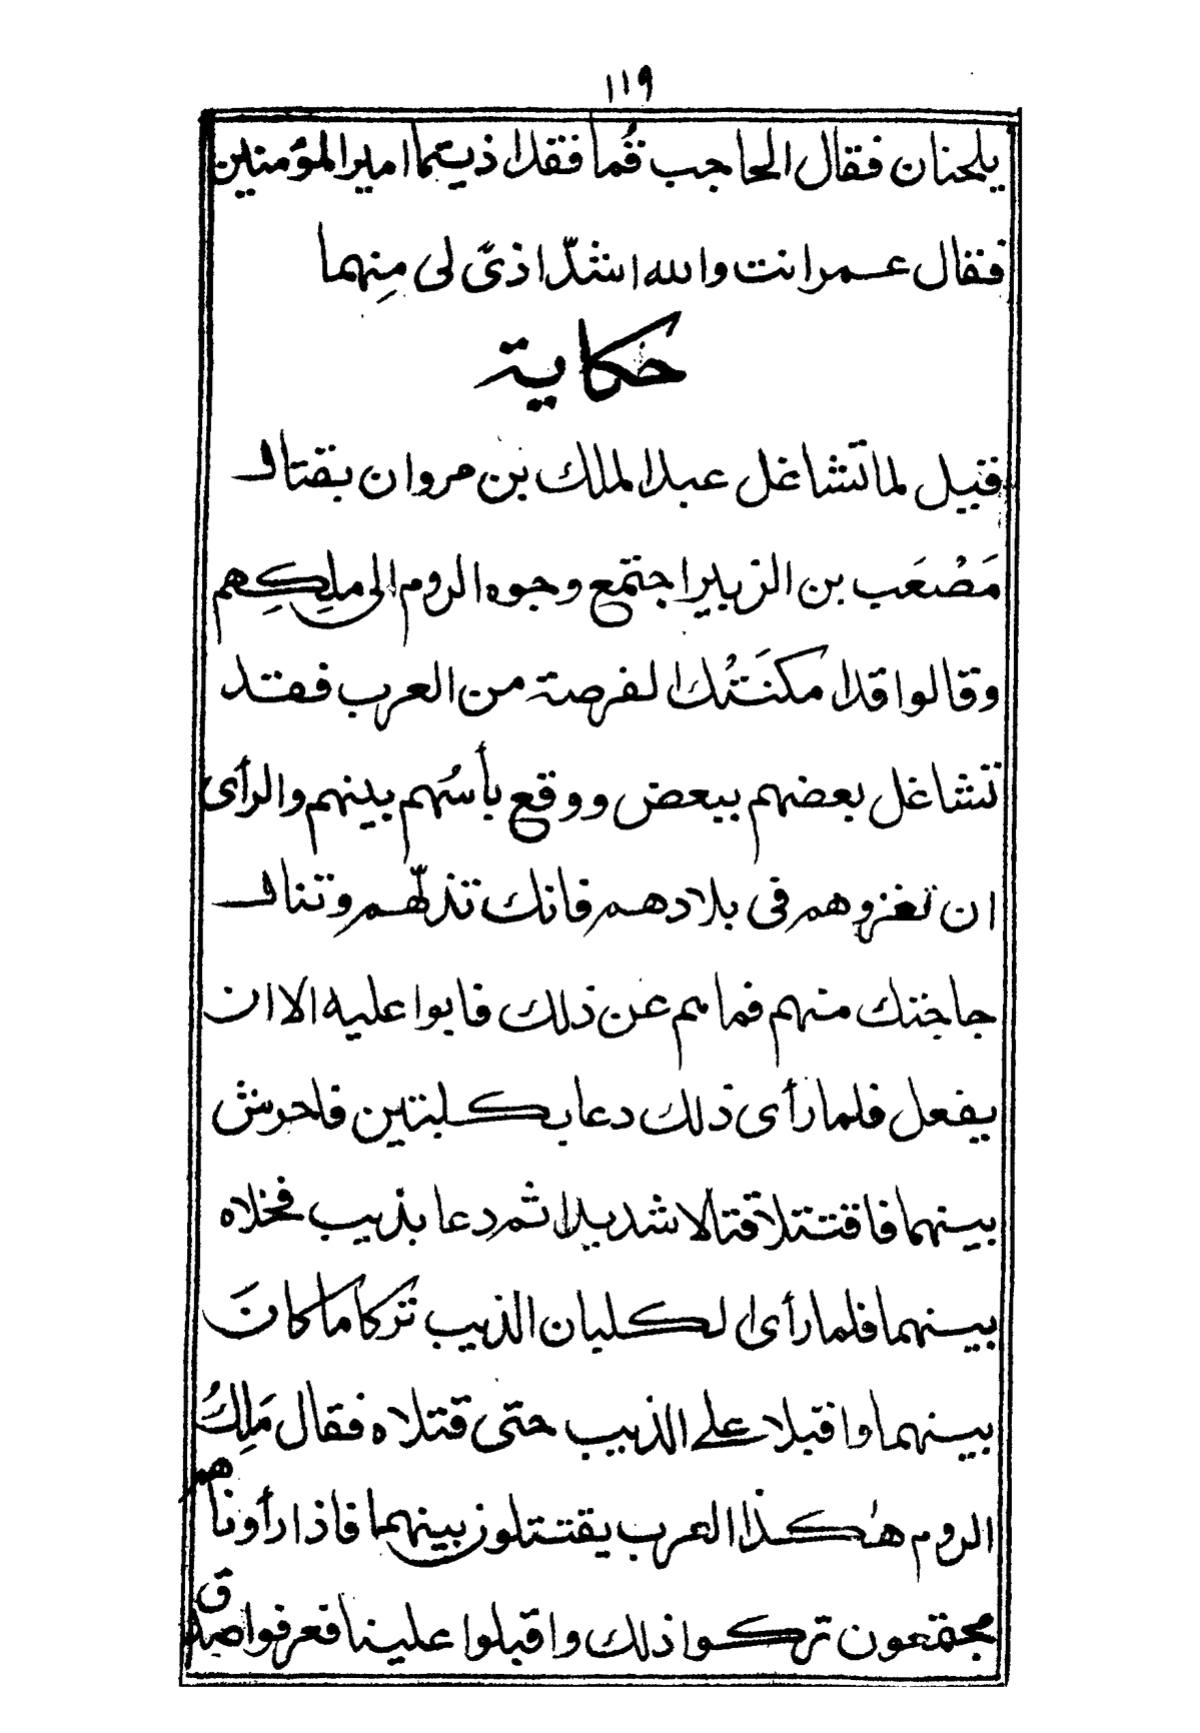 ١١٩
يلحنان فقال الحاجب قُما فقد اذيتما امير المؤمنين
فقال عمر انت والله اشدّ اذىً لى مِنهما
حكاية
قيل لما تشاغل عبد الملك بن مروان بقتال
مَصْعَب بن الزبير اجتمع وجوه الروم الى ملِكِهم
وقالوا قد امكنَتْك الفرصة من العرب فقد
تشاغل بعضهم ببعض ووقع بأسُهم بينهم والرأى
ان تغزوهم فى بلادهم فانك تذلّهم وتنال
حاجتك منهم فما هم عن ذلك فابوا عليه الا ان
يفعل فلما رأى ذلك دعا بكلبتين فاحرش
بينهما فاقتتلا قتالا شديدا ثم دعا بذيب فخلاه
بينهما فلما رأى الكلبان الذيب تركا ما كانَ
بينهما واقبلا على الذيب حتى قتلاه فقال مَلِكُ
الروم هٰكذا العرب يقتتلون بينهما فاذا رأونا هم
مجتمعون تركوا ذلك واقبلوا علينا فعرفوا صِدق